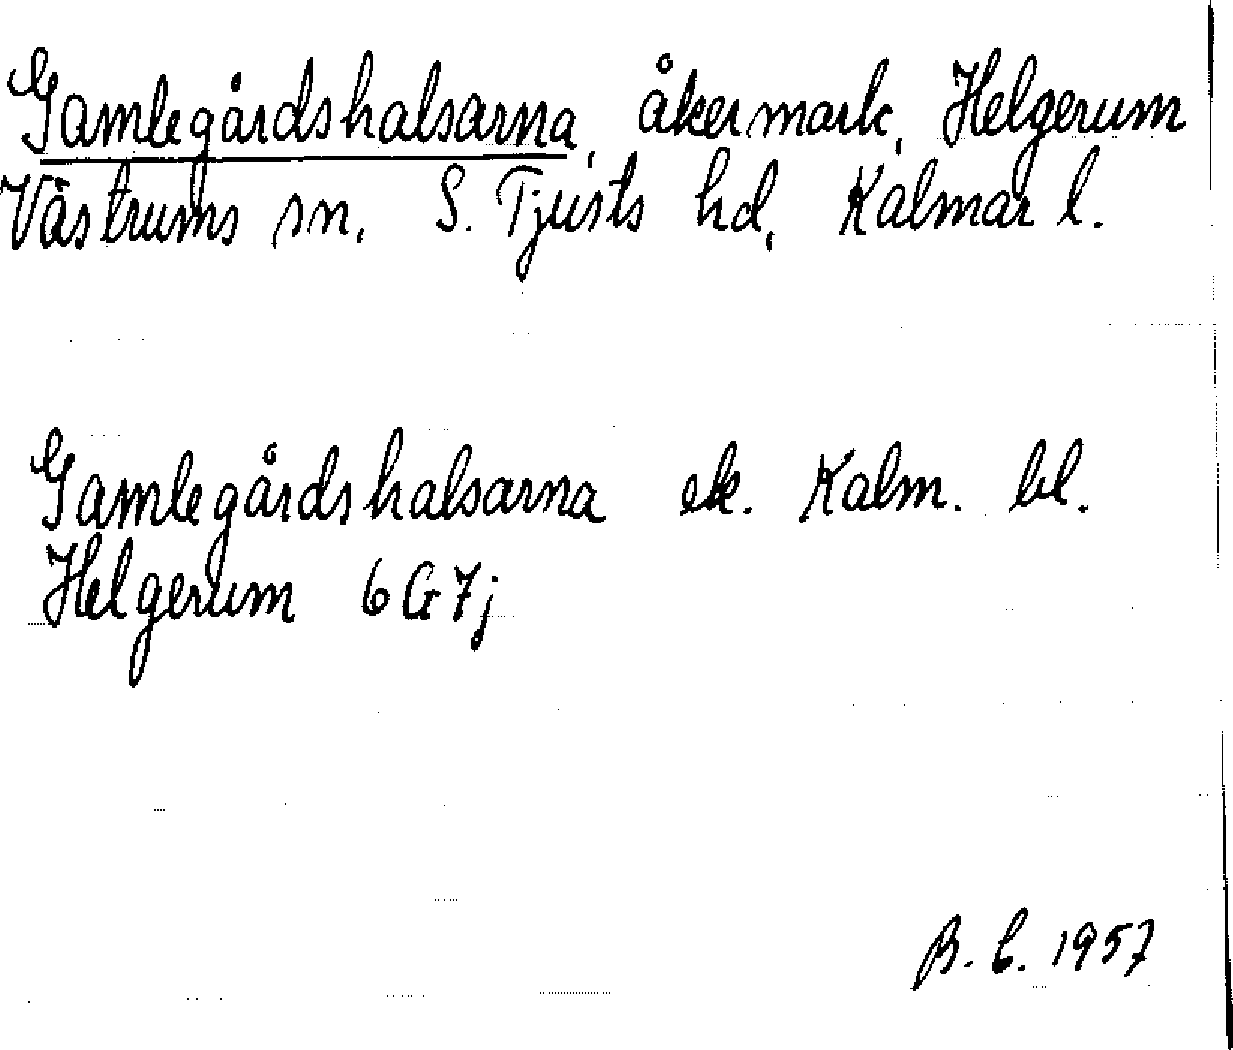 Gamlegårdshalsarna, åkermark, Helgerum
Västrums sn, S. Tjusts hd, Kalmar l.
Gamlegårdshalsarna ek. Kalm. bl.
Helgerum 6G7j
B. C. 1957